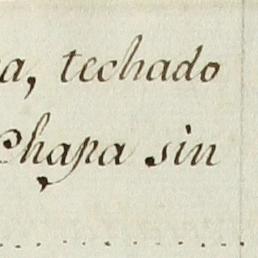 a, techado
Chapa sin